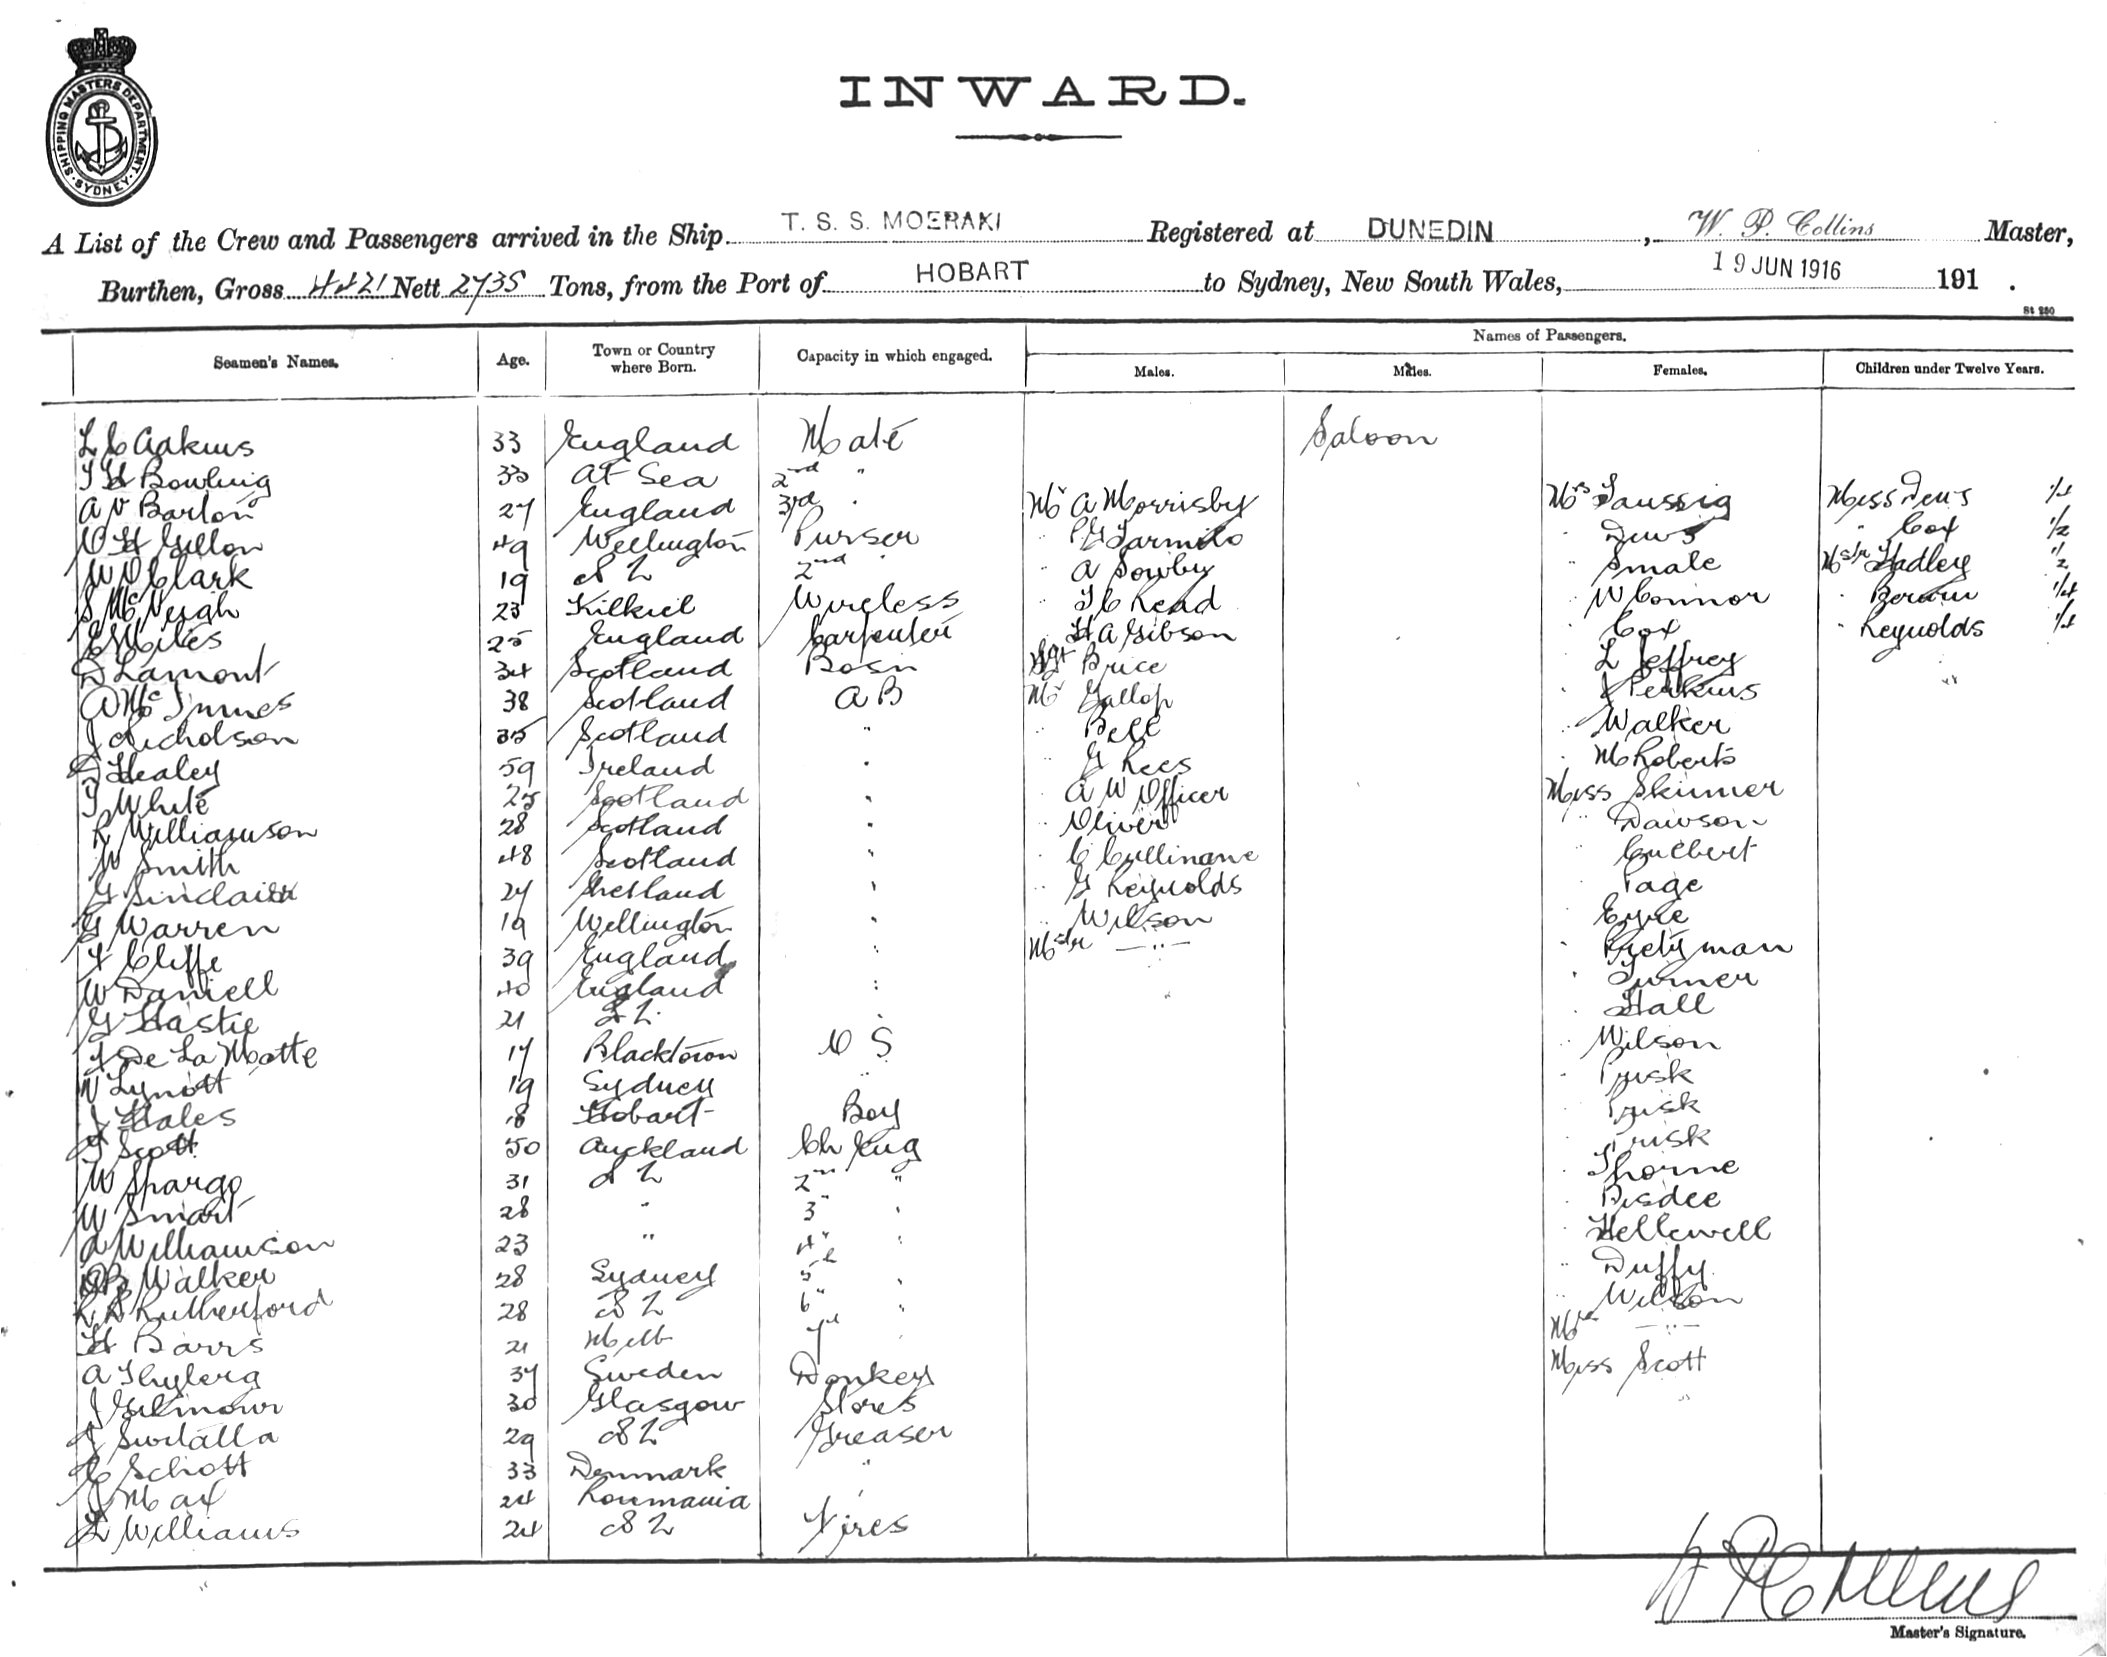 SHIPPING MASTERS DEPARTMENT. SYDNEY.
INWARD.
A List of the Crew and Passengers arrived in the Ship T. S. S. MOERAKI Registered at DUNEDIN, W. P. Collins Master,
Burthen, Gross 4421 Nett 2735 Tons, from the Port of HOBART to Sydney, New South Wales, 19 JUN 1916 191 .
St 250
Names of Passengers.
Seamen's Names. Age. Town or Country where Born. Capacity in which engaged. Males. Males. Females. Children under Twelve Years.
L C Adkins 33 England Mate Saloon
T H Bowling 33 At Sea 2nd "
A V Barton 27 England 3rd " Mr A Morrisby Mrs Taussig Miss Dews
Gillon 49 Wellington Purser " " Dews " Cox 1/2
W D Clark 19 N Z 2nd " " A Sowby " Smale Mstr Hadley 1/2
S McVeigh 23 Kilkiel Wireless " T C Read " W Connor "
E Miles 25 England Carpenter " H A Gibson " Cox " Reynolds
D Lamont 34 Scotland Bosn Sgt Brice " L Jeffrey
A McInnes 38 Scotland A B Mr Gallop " J Perkins
J Nicholson 35 Scotland " " Bell " Walker
Healey 59 Ireland " " G Rees " M Roberts
T White 25 Scotland " " A W Officer Miss Skinner
R Williamson 28 Scotland " " Oliver " Dawson
W Smith 48 Scotland " " C Cullinane " Cuthbert
G Sinclair 27 Shetland " " G Reynolds " Page
G Warren 19 Wellington " " Wilson " Eyre
F Cliffe 39 England " Mstr — " — " Pretyman
W Daniell 40 England " " Turner
G Hastie 21 N Z " " Hall
F De La Motte 17 Blacktown O S " Wilson
W Lynott 19 Sydney " " Prisk
J Hales 18 Hobart Boy " Prisk
Scott 50 Auckland Ch Eng " Prisk
W Spargo 31 N Z 2nd " " Thorne
W Smart 28 " 3 " " Bisdee
A Williamson 23 " 4 " " Hellewell
Walker 28 Sydney 5 " " Duffy
Rutherford 28 N Z 6 " " Wilson
H Barrs 21 Melb 7 " — " —
A Thylerg 37 Sweden Donkey Miss Scott
J Gilmour 30 Glasgow Stores
29 N Z Greaser
C Schott 33 Denmark "
J Max 24 Roumania "
L Williams 24 N Z Fires
W P Collins
Master's Signature.